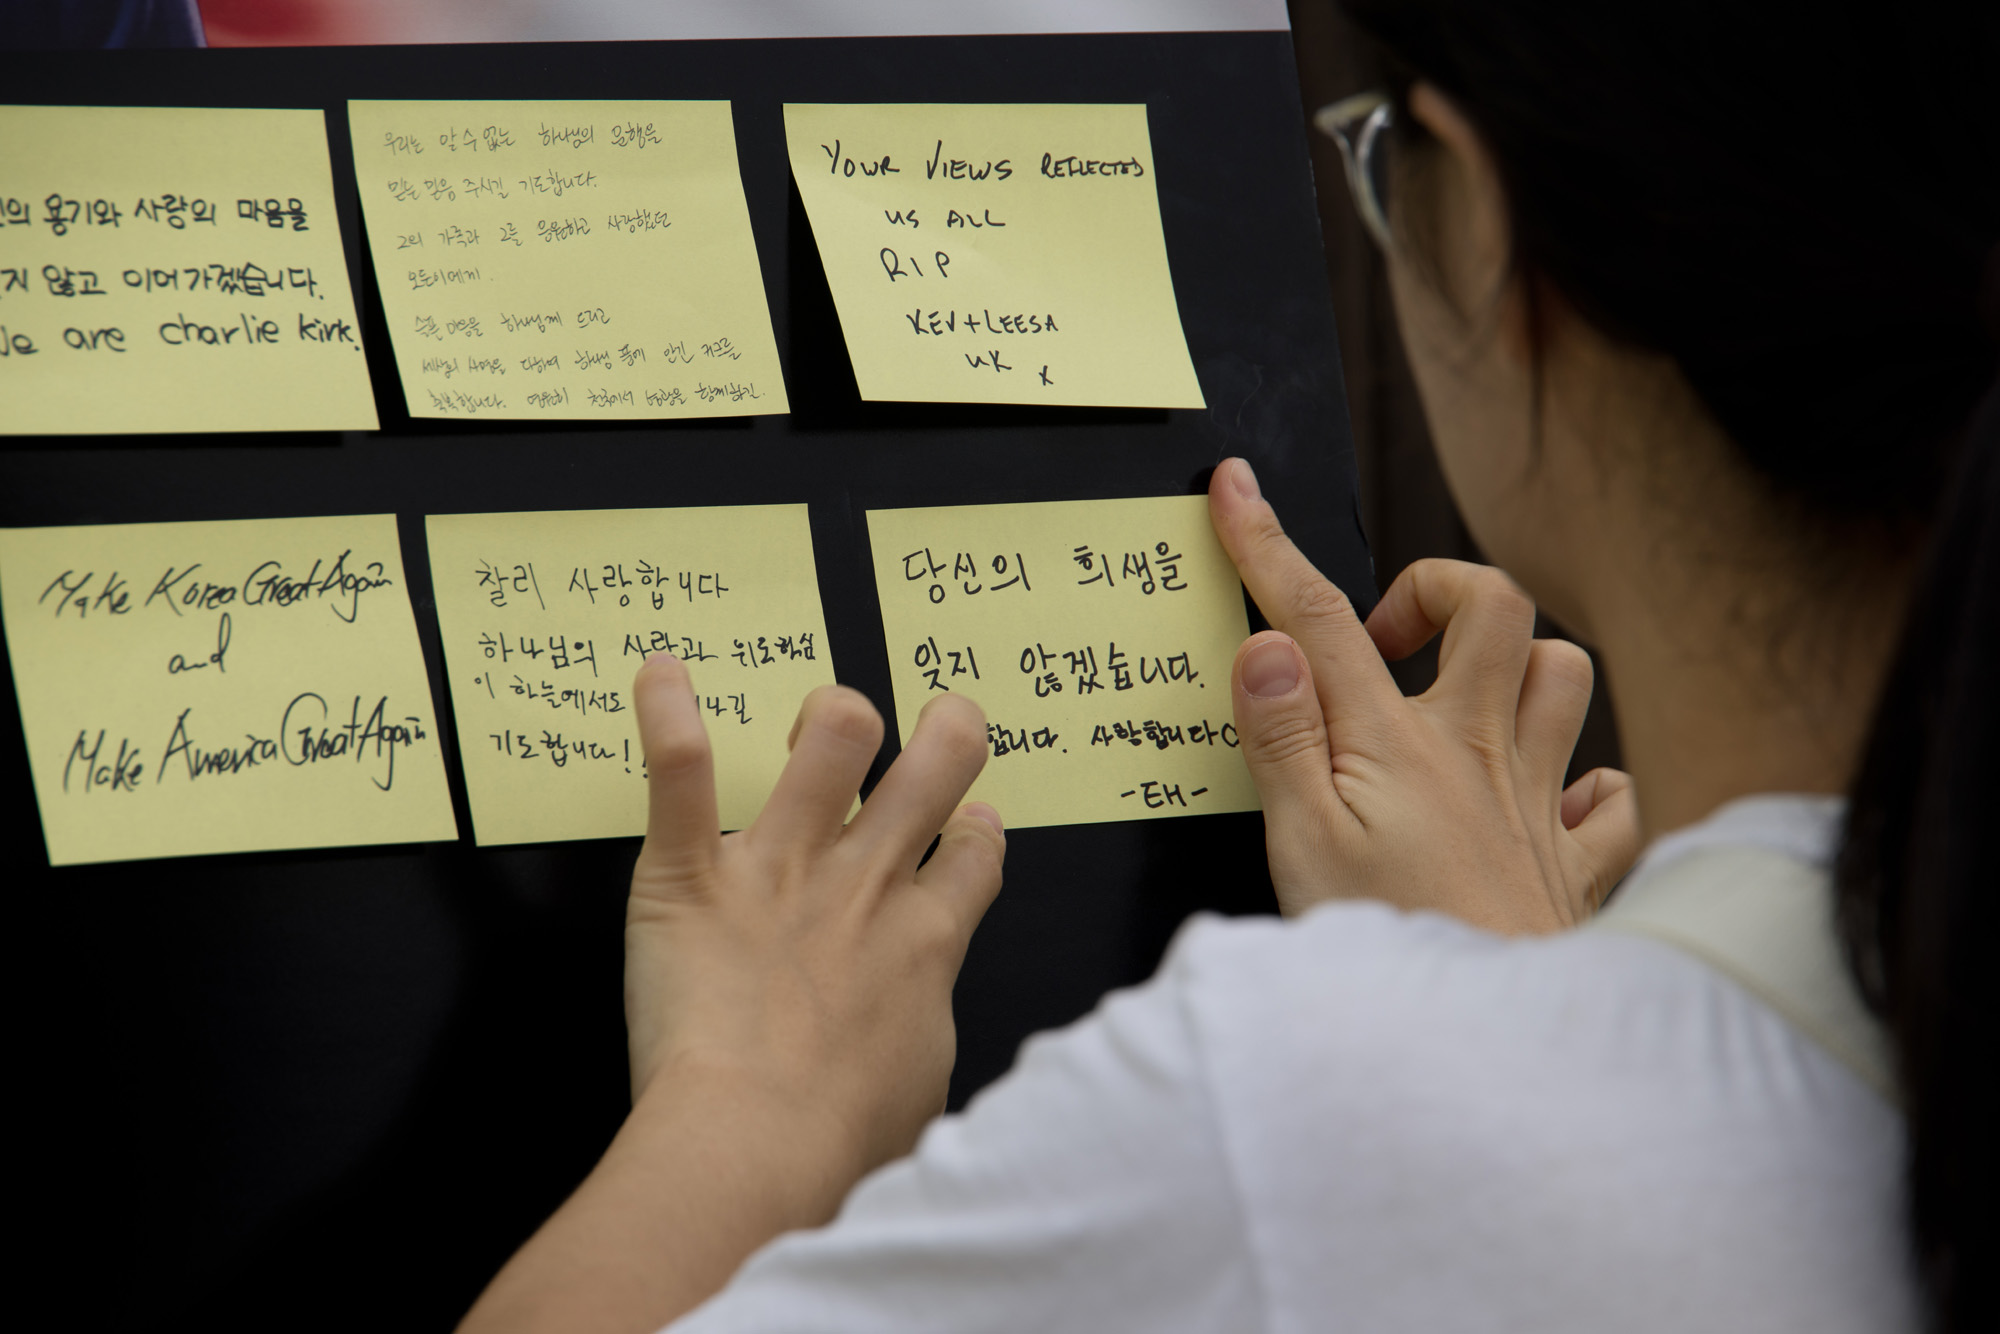 용기와 사랑의 마음을
않고 이어가겠습니다.
are charlie kirk.
우리는 알 수 없는 하나님의 은행을
믿는 믿음 주시길 기도합니다.
그의 가족과 그를 응원하고 사랑했던
모든이에게.
슬픈 마음을 하나님께 드리고
세상의 사명을 다하여 하나님 품에 안긴 커크를
축복합니다. 영원히 천국에서 함께하길.
YOUR VIEWS REFLECTED
US ALL
RIP
KEV + LEESA
UK
X
Make Korea Great Again
and
Make America Great Again
찰리 사랑합니다
하나님의 사랑과 위로하심
이 하늘에서도
기도합니다!!
당신의 희생을
잊지 않겠습니다.
사랑합니다♡
-EH-